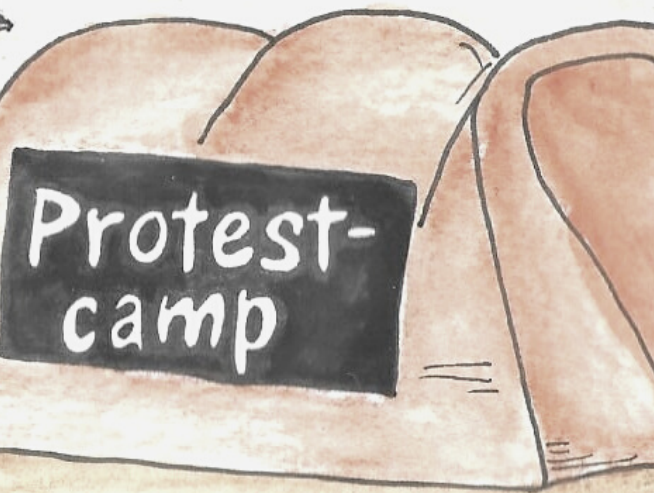 Protest-
camp